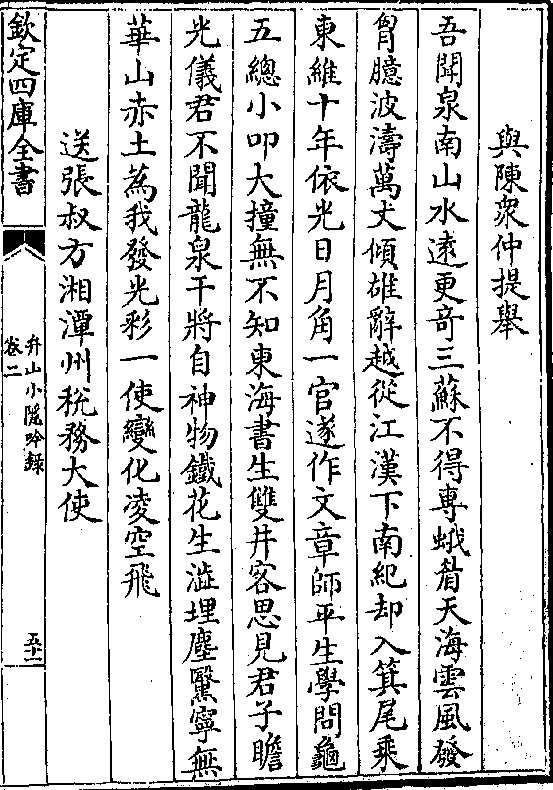 與陳衆仲提舉
吾聞泉南山水遠更奇三蘇不得專蛾眉天海雲風發
胷臆波濤萬丈傾雄辭越從江漢下南紀却入箕尾乗
東維十年依光日月角一官遂作文章師平生學問龜
五總小叩大撞無不知東海書生雙井客思見君子瞻
光儀君不聞龍泉干將自神物鐵花生澁埋塵翳寧無
華山赤土為我發光彩一使變化凌空飛
送張叔方湘潭州稅務大使
欽定四庫全書
升山小隱吟録
卷二